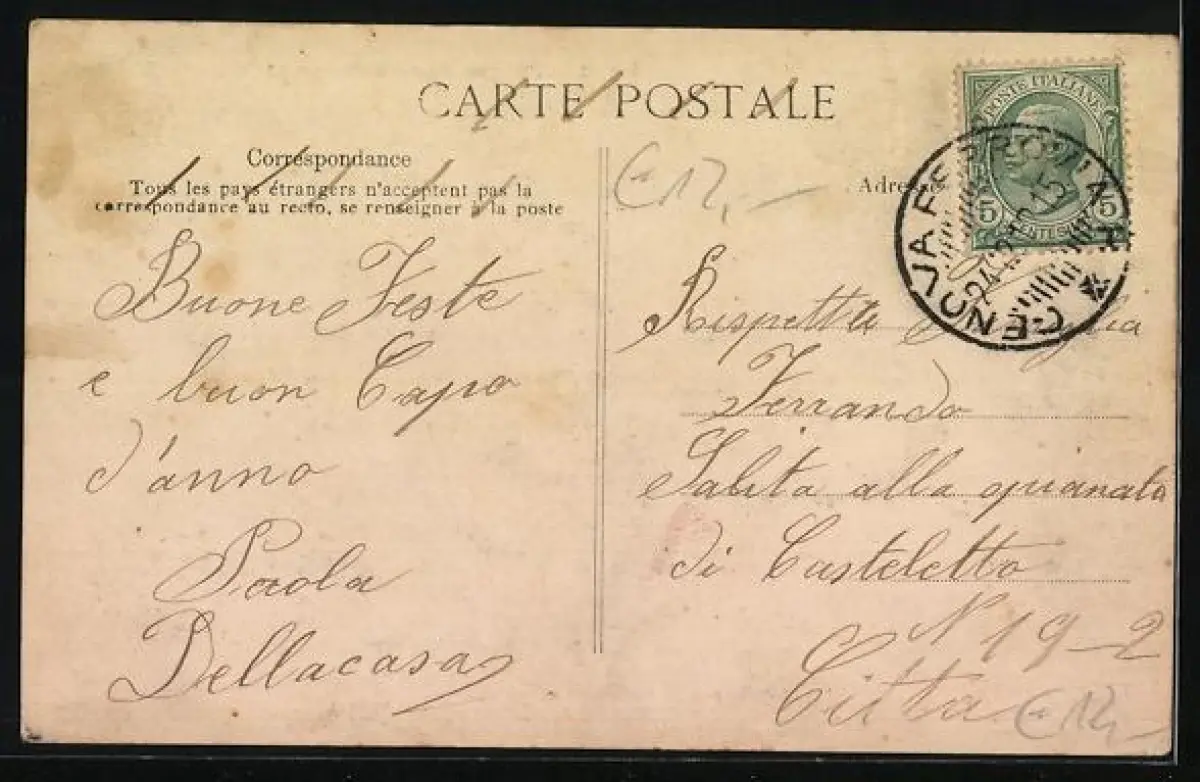 CARTE POSTALE
Correspondance
Tous les pays étrangers n'acceptent pas la
correspondance au recto, se renseigner à la poste
Buone Feste
e buon Capo
d'anno
Paola
Dellacasa
€ 12,-
POSTE ITALIANE
5 CENTESIMI 5
GENOVA FERROVIA
24 15
Adresse
Rispetta
Ferrando
Salita alla spianata
di Casteletto
N 19-2
Città
€ 12,-